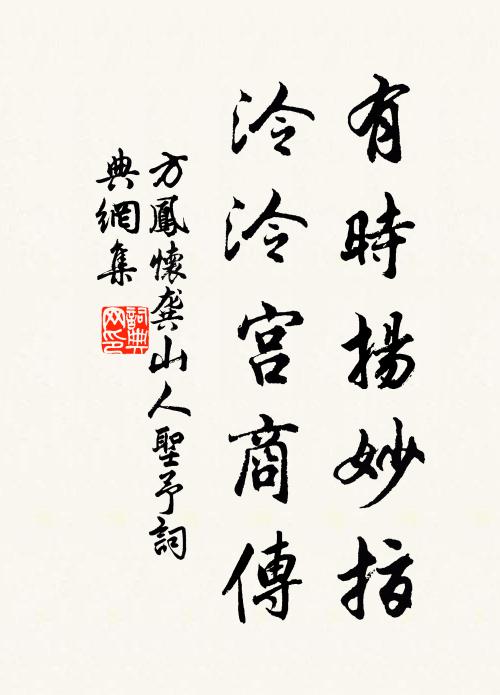 有時揚妙指
泠泠宮商傳
方鳳懷龔山人聖予詞
典網集
詞典网印